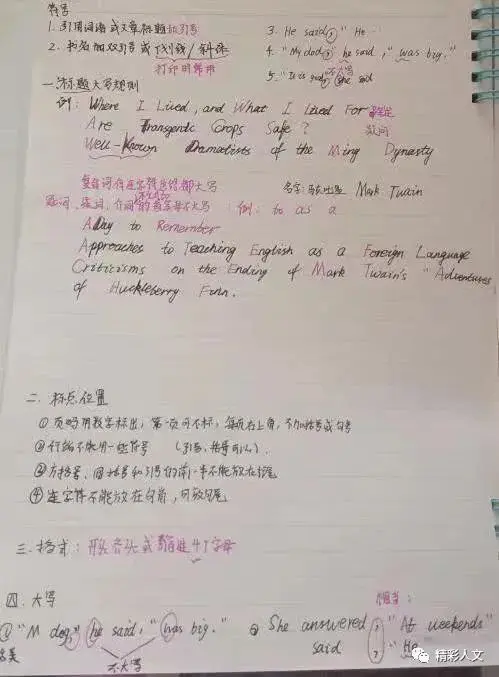 符号
1. 引用词语或文章标题加引号
2. 书名加双引号或下划线/斜体
打印用斜体
3. He said, "He
4. "My dog, he said, "was big."
不大写
5. "It is good," she said
一. 标题大写规则
例: Where I Lived, and What I Lived For
Are Transgenic Crops Safe? 疑问
Well-Known Dramatists of the Ming Dynasty
复合词有连字符连结都大写
名字: 马克吐温 Mark Twain
冠词、连词、介词 的首字母不大写: 例: to as a
A Day to Remember
Approaches to Teaching English as a Foreign Language
Criticisms on the Ending of Mark Twain's "Adventures
of Huckleberry Finn.
二. 标点位置
① 页码用数字标出, 第一页可不标, 每页右上角, 不加括号或句号
② 行端不能用一些符号 (引号, 括号可以).
③ 方括号、圆括号和引号的前一半不能放在行尾
④ 连字符不能放在句首, 可放句尾
三. 格式: 开头齐头或者缩进4个字母
四. 大写
① "M dog," he said, "was big."
不大写
② She answered, "At weekends"
said, "He
相当:
精彩人文